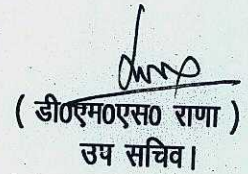 ( डी०एम०एस० राणा )
उप सचिव।